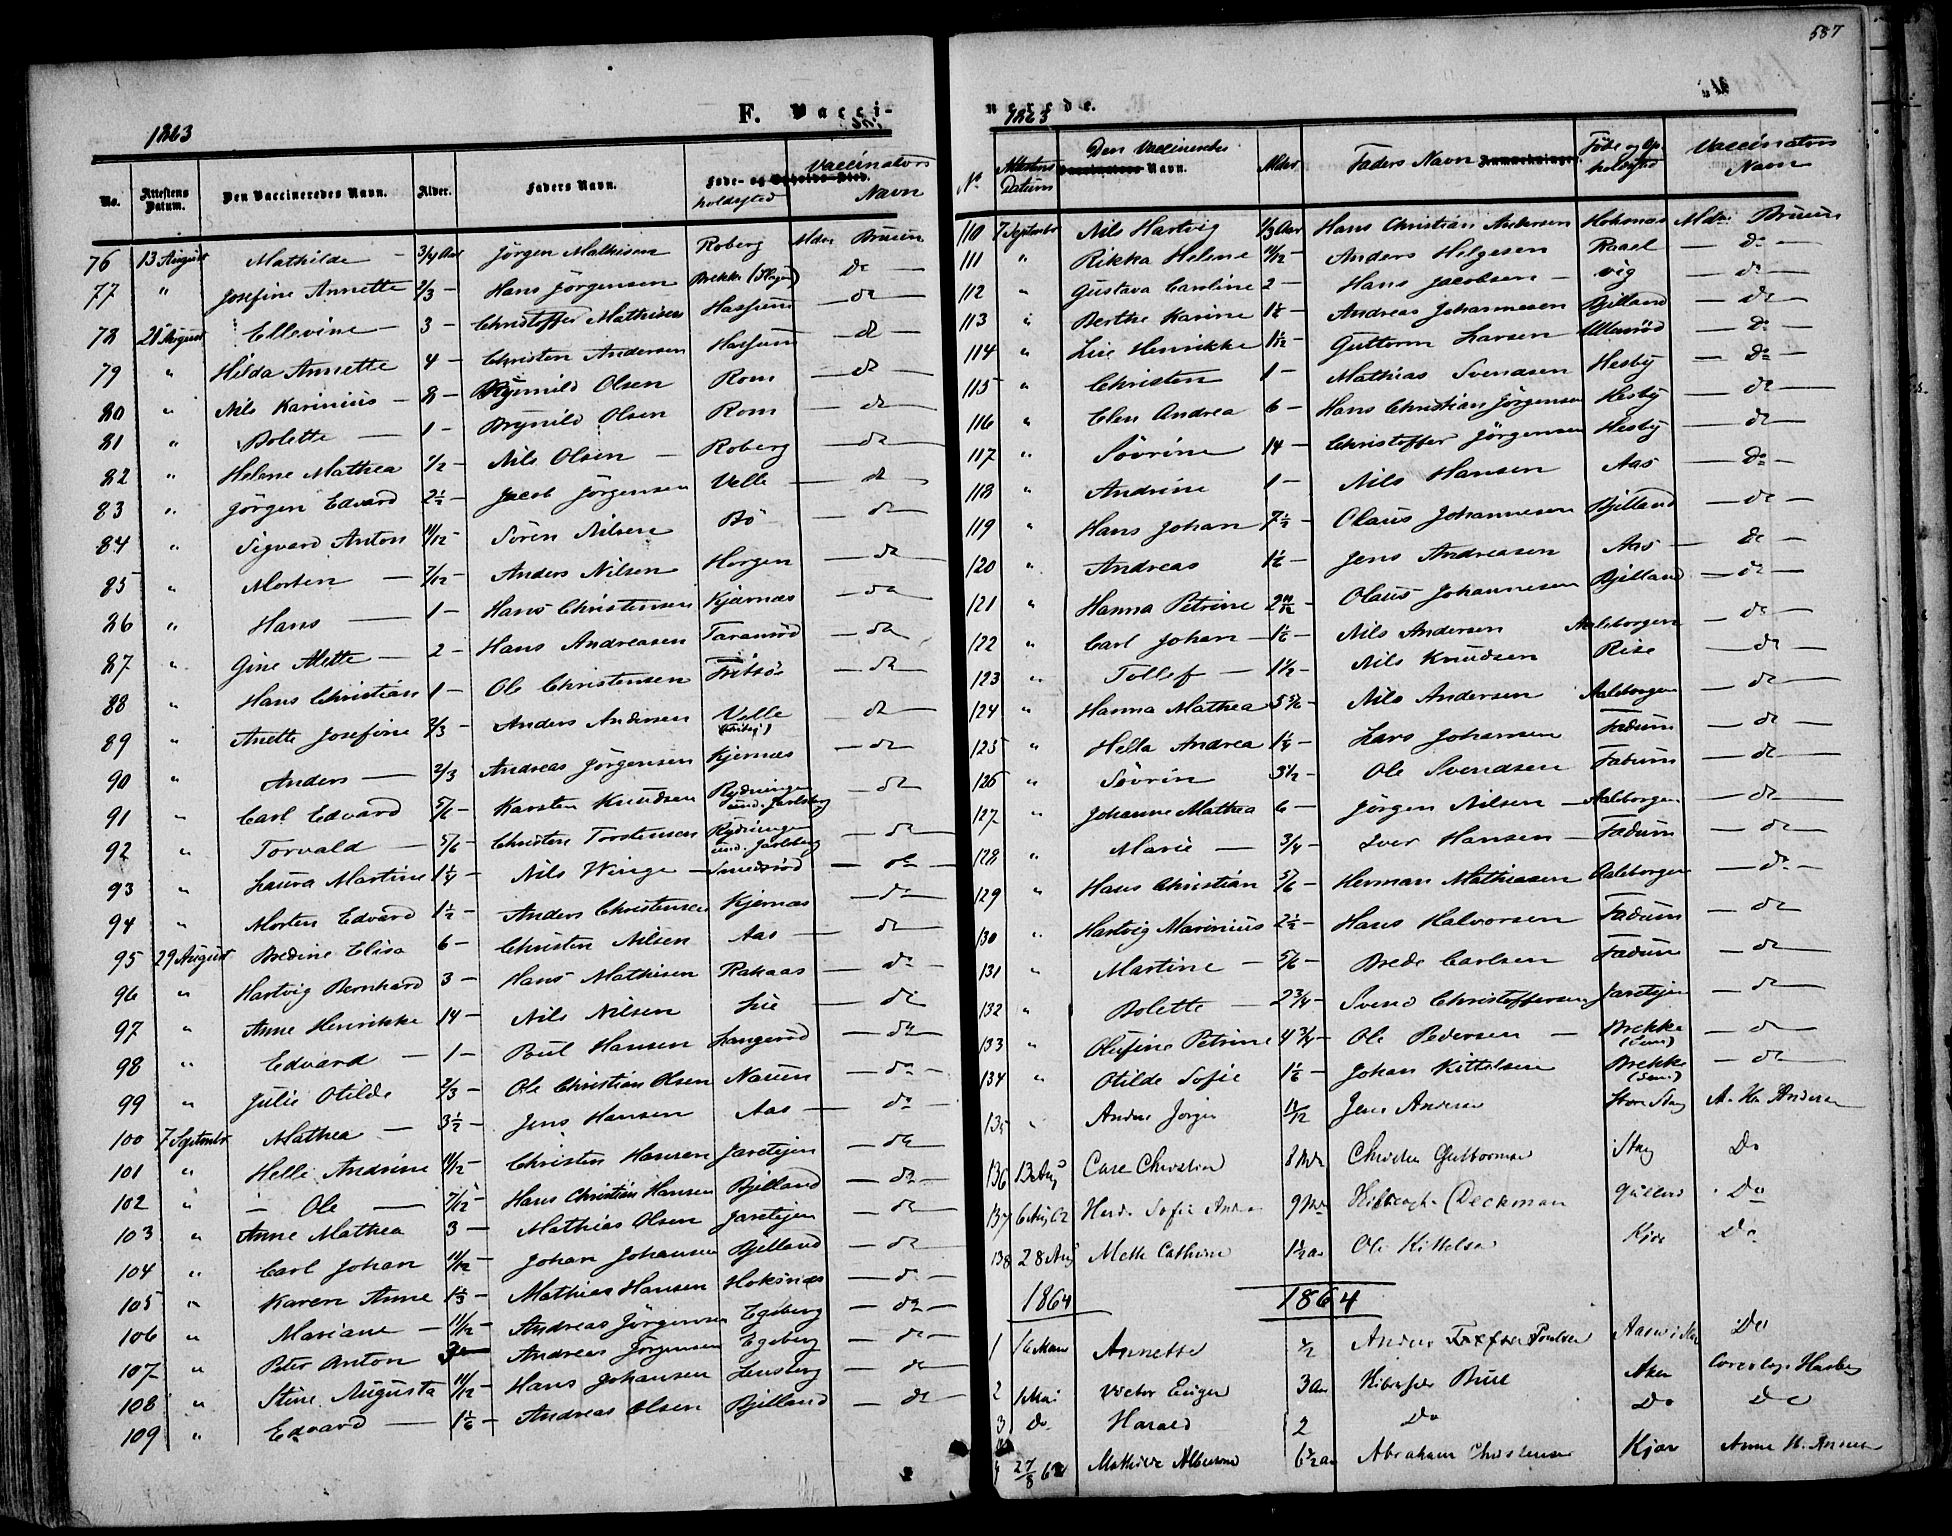 587
F. Vacci-
nerede.
1863
1863
No.
Attestens Datum.
Den Vaccineredes Navn.
Alder.
Faders Navn.
Føde- og Opholds-Sted.
holdssted
Vaccinators Navn
76 13 August Mathilde - 3/4 Aar Jørgen Mathisen Roberg Mdm Bruun
77 " Josefine Annette 2/3 - Hans Jørgensen Brekke do
78 21 August Ellevine - 3 - Christoffer Mathisen Hassum - do -
79 " Hilda Annette 4 - Christen Andersen Hassum - do -
80 " Nils Karinius - 8 - Brynild Olsen Rom - do -
81 " Bolette - 1 - Brynild Olsen Rom - do -
82 " Helene Mathea 1/2 - Nils Olsen - Roberg - do -
83 " Jørgen Edvard 2 1/2 - Jacob Jørgensen Velle - do -
84 " Sigvard Anton 11/12 - Søren Nilsen Bö - do -
85 " Morten - 7/12 - Anders Nilsen Horgen - do -
86 " Hans - 1 - Hans Christensen Kjærnæs - do -
87 " Gine Mette - 2 - Hans Andreasen Taranrød - do -
88 " Hans Christian 1 - Ole Christensen Fritsö - do -
89 " Anette Josefine 2/3 - Anders Andersen Velle - do -
90 " Anders - 2/3 Andreas Jørgensen Kjernæs - do -
91 " Carl Edvard 5/6 - Karsten Knudsen Rydningen und. Jarlsberg - do -
92 " Torvald - 5/6 - Christen Torstensen Rydningen und. Jarlsberg - do -
93 " Laura Martine 1 1/4 - Nils Winge - Smedsrød - do -
94 " Morten Edvard 1 1/2 - Anders Christensen Kjernæs - do -
95 29 August Bredine Elisa 6 - Christen Nilsen Aas - do -
96 " Hartvig Bernhard 3 - Hans Mathisen Rakaas - do -
97 " Anne Henrikke 14 - Nils Nilsen Lie - do -
98 " Edvard - 1 - Poul Hansen Langerød - do -
99 " Julie Otilde 2/3 - Ole Christian Olsen Nauen - do -
100 7 September Mathea - 3 1/2 - Jens Hansen Aas - do -
101 " Helle Andrine 11/12 - Christen Hansen Jaretejen - do -
102 " - Ole - 7/12 - Hans Christian Hansen Bjelland - do -
103 " Anne Mathea 3 - Mathias Olsen Jaretejen - do -
104 " Carl Johan 11/12 - Johan Johansen Bjelland - do -
105 " Karen Anne 1 1/3 - Mathias Hansen Hoksnæs - do -
106 " Mariane - 11/12 - Andreas Jørgensen Egeberg - do -
107 " Peter Anton Andreas Jørgensen Egeberg - do -
108 " Stine Augusta 11/12 - Hans Johansen Lensberg - do -
109 " Edvard - 1 1/6 - Andreas Olsen Bjelland - do -
No Attestens Datum
Den Vaccineredes Navn.
Alder
Faders Navn Anmerkninger.
Föde og Opholdssted
Vaccinators Navn
110 7 September Nils Hartvig 1/3 Aar Hans Christian Andersen Hoksnæs Mdm Bruun
111 " Rikka Helene 11/12 - Anders Helgesen Raael - do -
112 " Gustava Caroline 2 - Hans Jacobsen - Vig - do -
113 " Berthe Karine 1 1/2 - Andreas Johannesen Bjelland - do -
114 " Lise Henrikke 1 1/12 - Guttorm Larsen Ullenrød - do -
115 " Christen 1 - Mathias Svendsen Hesby - do -
116 " Elen Andrea 6 - Hans Christian Jørgensen Hesby - do -
117 " Sövrine 14 - Christoffer Jørgensen Hesby - do -
118 " Andrine 1 - Nils Hansen Aas - do -
119 " Hans Johan 7 1/2 - Olaus Johannesen Bjelland - do -
120 " Andreas 1 1/6 - Jens Andreasen Aas - do -
121 " Hanna Petrine 2 11/12 - Olaus Johannesen Bjelland - do -
122 " Carl Johan - 1 1/6 - Nils Andersen Aaleborgen - do -
123 " Tollef - 1 1/2 - Nils Knudsen Rise - do -
124 " Hanna Mathea 5 5/6 - Nils Andersen Aaleborgen - do -
125 " Hella Andrea 1 1/4 - Lars Johansen Fadum - do -
126 " Sövrin 3 1/2 - Ole Svendsen Fadum - do -
127 " Johanne Mathea 6 - Jørgen Nilsen - Aaleborgen - do -
128 " Marie - 3/4 - Iver Hansen - Fadum - do -
129 " Hans Christian 5/6 - Herman Mathiasen Aaleborgen - do -
130 " Hartvig Marinius 2 1/2 - Hans Halvorsen Fadum - do -
131 " Martine - 5/6 - Brede Carlsen Fadum - do -
132 " Bolette - 2 3/4 - Svend Christoffersen Jaretejen - do -
133 " Olufine Petrine 4 3/4 - Ole Pedersen - Brekke (Sem) - do -
134 " Otilde Sofie 1 1/6 - Johan Kittelsen Brekke (Sem) - do -
135 " Anders Jørgen 11/12 Jens Andersen A. Ha Andersen
136 13 Aug Carl Christian 8 Mdr Christen Guttormsen Do
137 Sofie 9 Mdr Deckman Do
138 28 Aug Mette Cathrine 1 1/2 aar Ole Kittelsen Kjær Do
1864
1864
1 Annette 1/2 Anders Poulsen Do
2 Mai Victor Eugen 3 Aar Buul Aker
3 Do Harald 2 Do Do Do
4 27/8 Mathilde 6 1/2 aar Abraham Christensen Kjær Anne H.